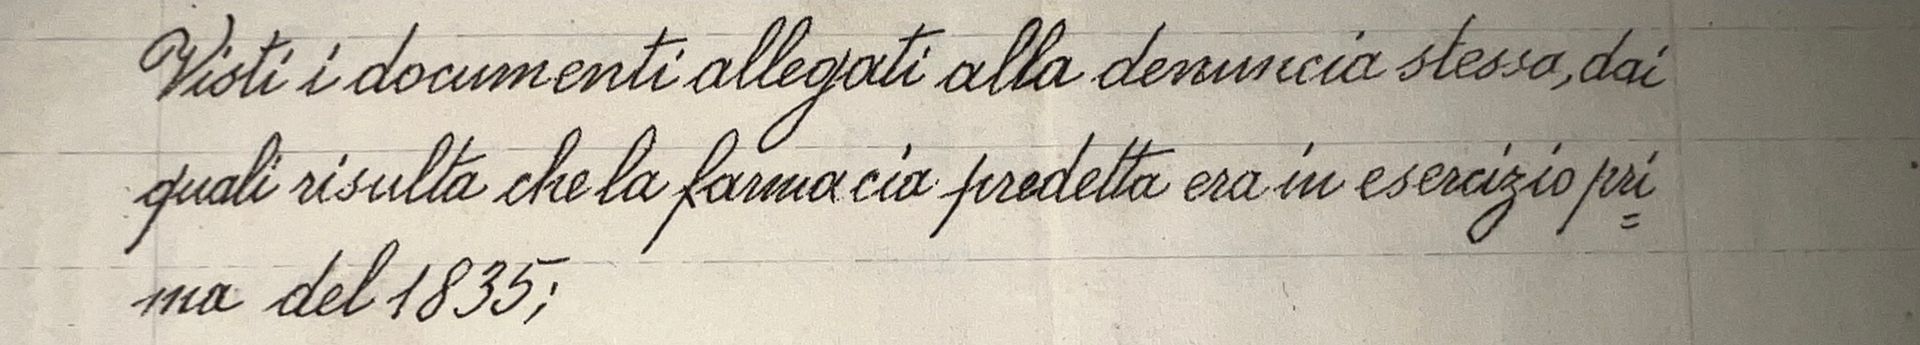 Visti i documenti allegati alla denuncia stessa, dai
quali risulta che la farmacia predetta era in esercizio pri=
ma del 1835;